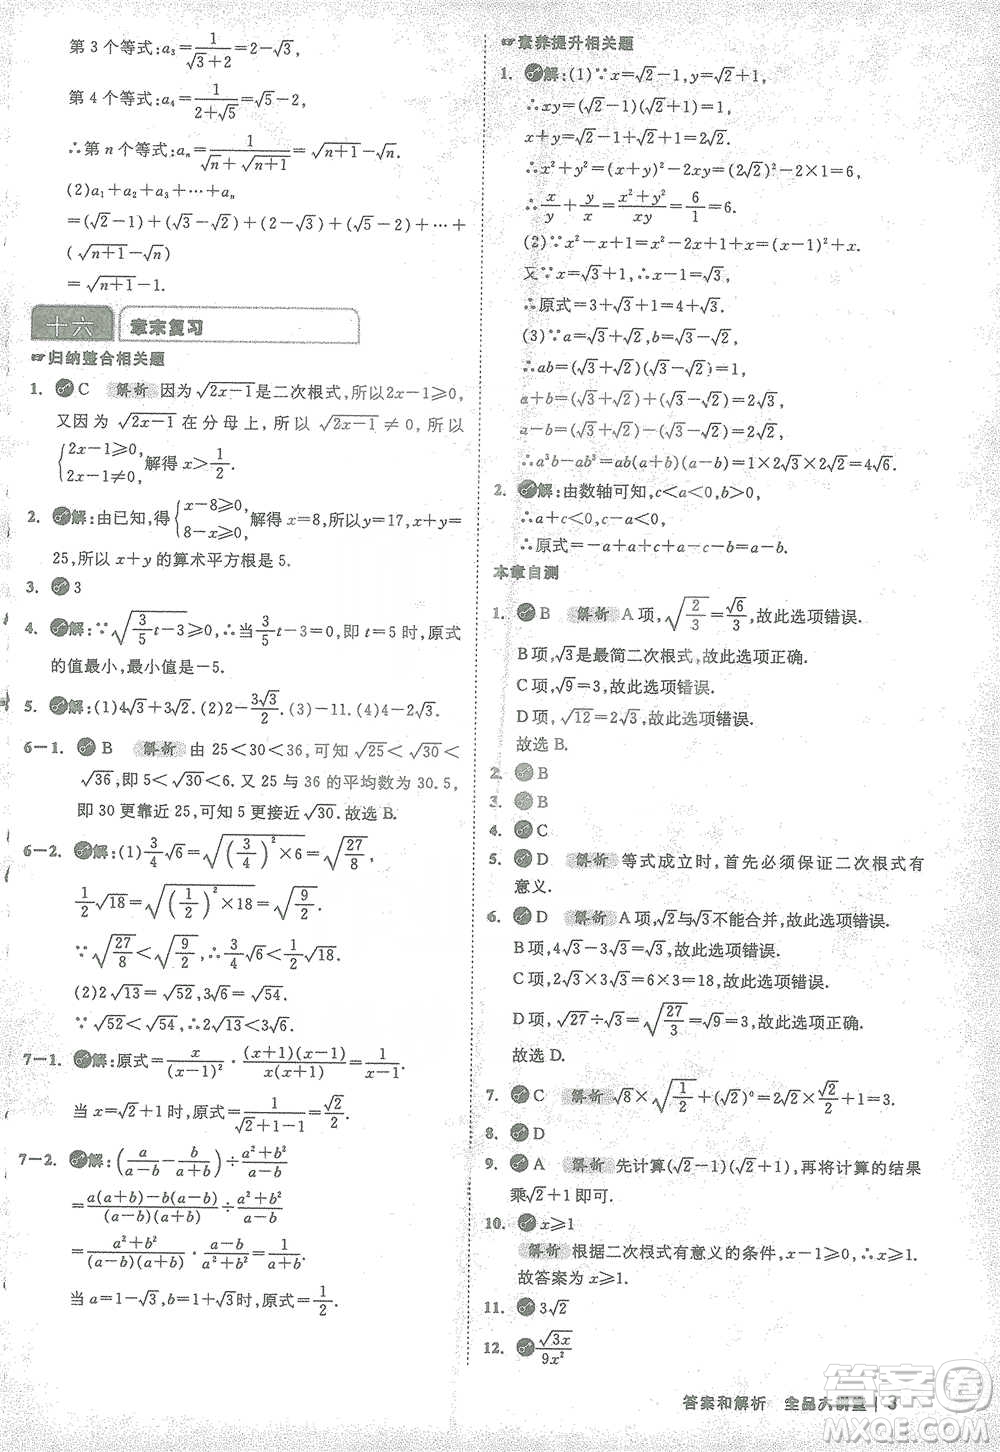 第 3 个等式:a₃=1/(√3+2)=2-√3,
第 4 个等式:a₄=1/(2+√5)=√5-2,
∴第 n 个等式:aₙ=1/(√n+√(n+1))=√(n+1)-√n.
(2)a₁+a₂+a₃+…+aₙ
=(√2-1)+(√3-√2)+(2-√3)+(√5-2)+…+
(√(n+1)-√n)
=√(n+1)-1.
十六 章末复习
☞归纳整合相关题
1. C 解析 因为√(2x-1)是二次根式,所以2x-1⩾0,
又因为√(2x-1)在分母上,所以√(2x-1)≠0,
{2x-1⩾0, 2x-1≠0, 解得 x>1/2.
2. 解:由已知,得{x-8⩾0, 8-x⩾0, 解得 x=8,所以y=17,x+y=
25,所以 x+y 的算术平方根是 5.
3. 3
4. 解:∵√(3/5 t-3)⩾0,∴当3/5 t-3=0,即 t=5 时,原式
的值最小,最小值是-5.
5. 解:(1)4√3+3√2. (2)2-3√3/2. (3)-11. (4)4-2√3.
6-1. B 解析 由 25<30<36,可知√25<√30<
√36,即 5<√30<6. 又 25 与 36 的平均数为 30.5,
即 30 更靠近 25,可知 5 更接近√30.故选 B.
6-2. 解:(1)3/4√6=√((3/4)²×6)=√(27/8),
1/2√18=√((1/2)²×18)=√(9/2).
∵√(27/8)<√(9/2),∴3/4√6<1/2√18.
(2)2√13=√52,3√6=√54.
∵√52<√54,∴2√13<3√6.
7-1. 解:原式=x/(x-1)²·(x+1)(x-1)/x=(x+1)/(x-1).
当 x=√2+1时,原式=1/(√2+1-1)=√2/2.
7-2. 解:(a/(a-b)-b/(a+b))÷(a²+b²)/(a+b)
=(a(a+b)-b(a-b))/((a-b)(a+b))÷(a²+b²)/(a+b)
=(a²+b²)/((a+b)(a-b))·(a+b)/(a²+b²)=1/(a-b).
当 a=1-√3,b=-1-√3时,原式=1/2.
☞素养提升相关题
1. 解:(1)∵x=√2-1,y=√2+1,
∴xy=(√2-1)(√2+1)=1,
x+y=√2-1+√2+1=2√2.
∴x²+y²=(x+y)²-2xy=(2√2)²-2×1=6,
∴x/y+y/x=(x²+y²)/xy=6/1=6.
(2)∵x²-x+1=x²-2x+1+x=(x-1)²+x.
又∵x=√3+1,∴x-1=√3,
∴原式=3+√3+1=4+√3.
(3)∵a=√3+√2,b=√3-√2,
∴ab=(√3+√2)(√3-√2)=1,
a+b=(√3+√2)+(√3-√2)=2√3,
a-b=(√3+√2)-(√3-√2)=2√2,
∴a³b-ab³=ab(a+b)(a-b)=1×2√3×2√2=4√6.
2. 解:由数轴可知,c<a<0,b>0,
∴a+c<0,
∴原式=-a+a+c+b-c-b=0.
本章自测
1. B 解析 A 项,√(2/3)=√6/3,故此选项错误.
B 项,√3是最简二次根式,故此选项正确.
C 项,√9=3,故此选项错误.
D 项,√12=2√3,故此选项错误.
故选 B.
2. B
3. B
4. C
5. D 解析 等式成立时,首先必须保证二次根式有
意义.
6. D 解析 A 项,√2与√3不能合并,故此选项错误.
B 项,4√3-3√3=√3,故此选项错误.
C 项,2√3×3√3=6×3=18,故此选项错误.
D 项,√27÷√3=√(27/3)=√9=3,故此选项正确.
故选 D.
7. C 解析 √8×√(1/2)+(√2)⁰=2√2×√2/2+1=3.
8. D
9. A 解析 先计算(√2-1)(√2+1),再将计算的结果
乘√2+1即可.
10. x⩾1
解析 根据二次根式有意义的条件,x-1⩾0,∴x⩾1.
故答案为 x⩾1.
11. 3√2
12. √(3x)/(9x²)
答案和解析 全品大讲堂 | 3
答案圈